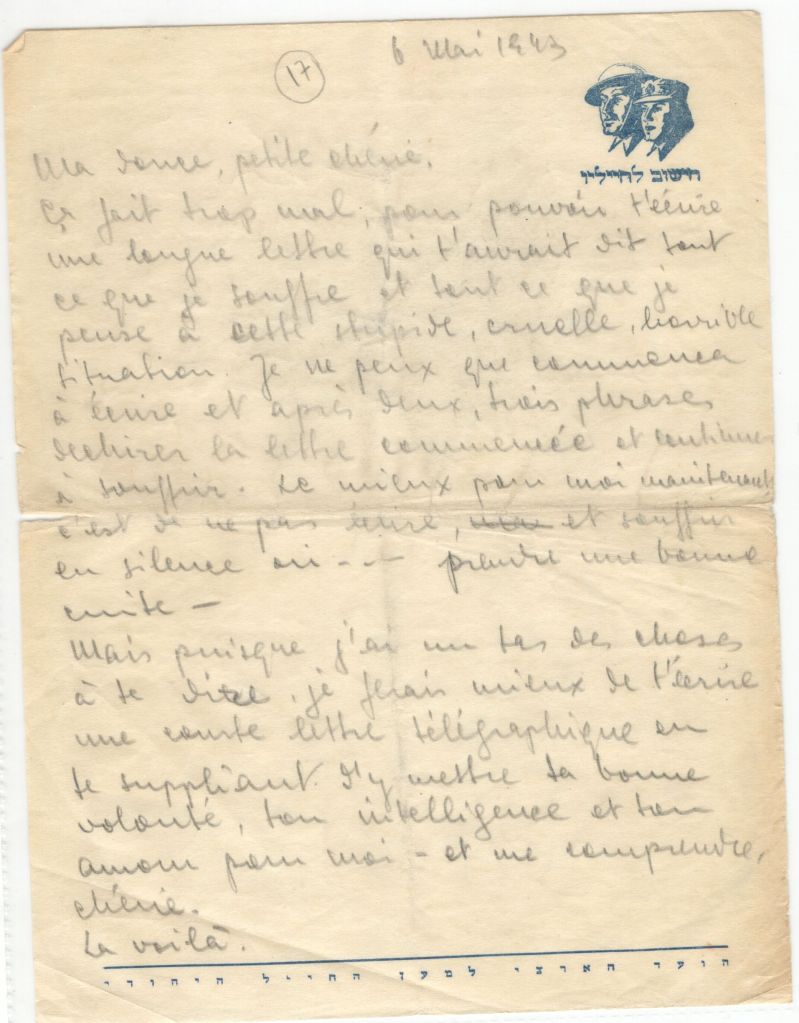 6 Mai 1943
17
חשוב לחיילין
Ma douce, petite chérie.
Ça fait trop mal, pour pouvoir t'écrire
une longue lettre qui t'aurait dit tout
ce que je souffre et tout ce que je
pense à cette stupide, cruelle, horrible
situation. Je ne peux que commencer
à écrire et après deux, trois phrases
dechirer la lettre commencée et continuer
à souffrir. Le mieux pour moi maintenant
c'est de ne pas écrire, et souffrir
en silence ou - - - prendre une bonne
cuite -
Mais puisque j'ai un tas des choses
à te dire, je ferais mieux de t'écrire
une courte lettre télégraphique en
te suppliant d'y mettre ta bonne
volonté, ton intelligence et ton
amour pour moi - et me comprendre,
chérie.
La voilà.
הועד הארצי למען החייל היהודי